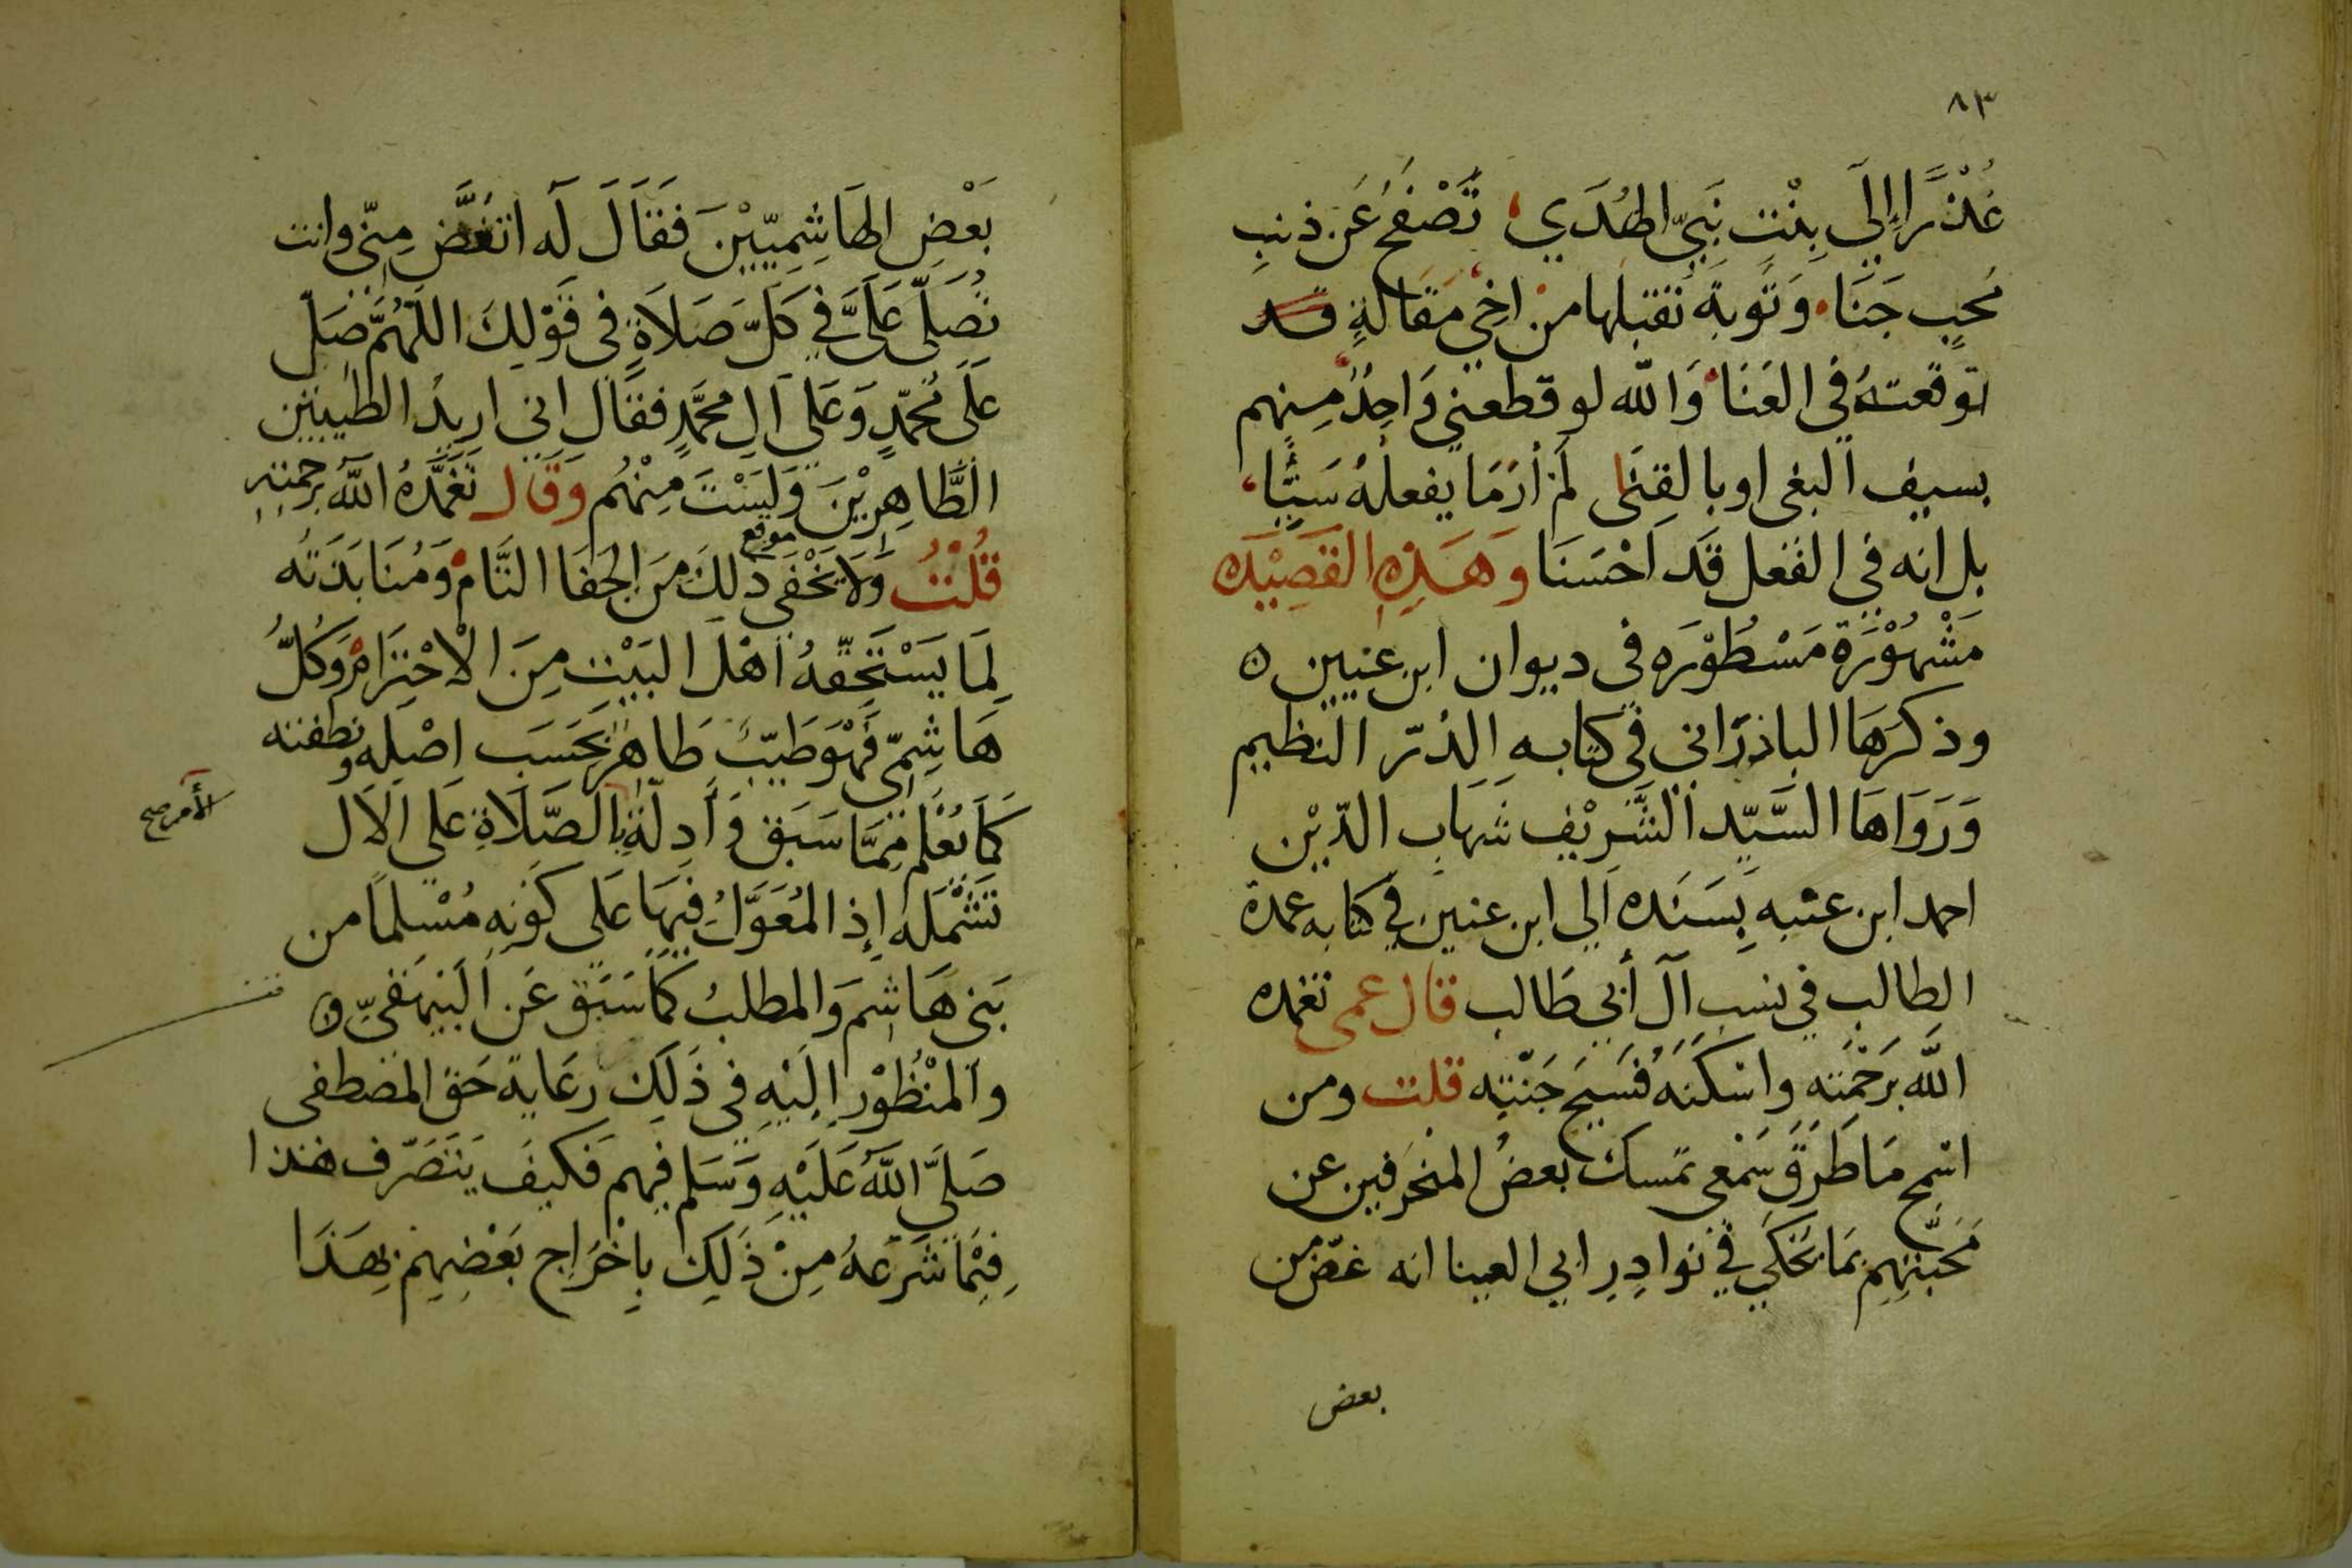 ٨٣
عُذْرًا إِلَي بِنْتِ نَبِيِّ الهُدَي تَصْفَحُ عَن ذنبِ
مُحِبٍ جَنَا وَتَوبة تقبلها من اخِي مَقَالَةٍ قد
توقعتهُ في العَنَا وَالله لو قطعني وَاحِدُ مِنهم
بسيف البغى او بالقنَى لَمْ أَرَ مَا يفعلهُ سَيِّئًا
بل انه في الفعل قَد احْسَنَا وَهَذِهِ القَصِيْدَه
مَشْهُوْرَة مَسْطُوْرَه في ديوان ابن عنيين ه
وذكرَهَا الباذرَاني في كتابهِ الدُرّ النظيم
وَرَوَاهَا السَّيِّد الشَّرِيْف شهَاب الدّيْن
احمد ابن عنبه بِسَنَده الي ابن عنين في كتابه عمدة
الطالب في نسب آل أبي طَالب قال عمى تغمده
الله بَرَحْمَته واسْكنَهُ فَسَيحَ جَنّتِه قلت ومن
اسْمج مَا طَرَقَ سَمْعى تمسك بعضُ المنحَرفين عن
مَحَبّتِهِم بمَا يُحْكَي في نوادِرِ ابي العينا انه غضّ من
بعض
بَعْضِ الهَاشِمِيّيْنَ فَقَالَ لَه اتغُضَّ مِنّي وانت
تُصَلّي عَلَيَّ في كَلّ صَلَاةٍ في قَوْلِكَ اللّهُمَّ صَلّ
عَلَى مُحَمّدٍ وَعَلى آلِ محمَّدٍ فقَال اني اريدُ الطيبين
الطَّاهِرِيْنَ وَلَسْتَ مِنْهُم وَقَال تَغَمَّدَهُ اللهُ برحمته
قُلْتُ وَلَا يَخْفَى موقع ذلكَ مِنَ الجَفَا التَّام وَمُنَابَذَتُه
لِمَا يَسْتَحِقّهُ اهْلَ البَيْتِ مِنَ الاحْتِرَام وَكُلُّ
هَاشِمِيّ فَهْوَ طَيّبٌ طَاهر بحَسَب اصْلِه ونطفته
كَمَا يُعْلَم مِمَّا سَبَق وَأدِلّة الأمر صح بالصَّلَاةِ عَلى الآل
تَشْمَلهُ إِذ المُعَوَّلُ فِيهَا عَلى كَونِهِ مُسْلِمًا من
بَني هَاشِم وَالمطلبُ كَمَا سَبَق عَن البَيهَقيّ ه
وَالمنْظُوْر اِلَيْهِ في ذَلِكَ رعَاية حَق المصْطفى
صَلَّى اللهُ عَلَيْهِ وَسَلم فيهم فَكيفَ يَتَصَرّف هذا
فِيْمَا شَرَعَهُ مِنْ ذَلِكَ بِاخْرَاجِ بَعْضِهِمْ بِهَذَا